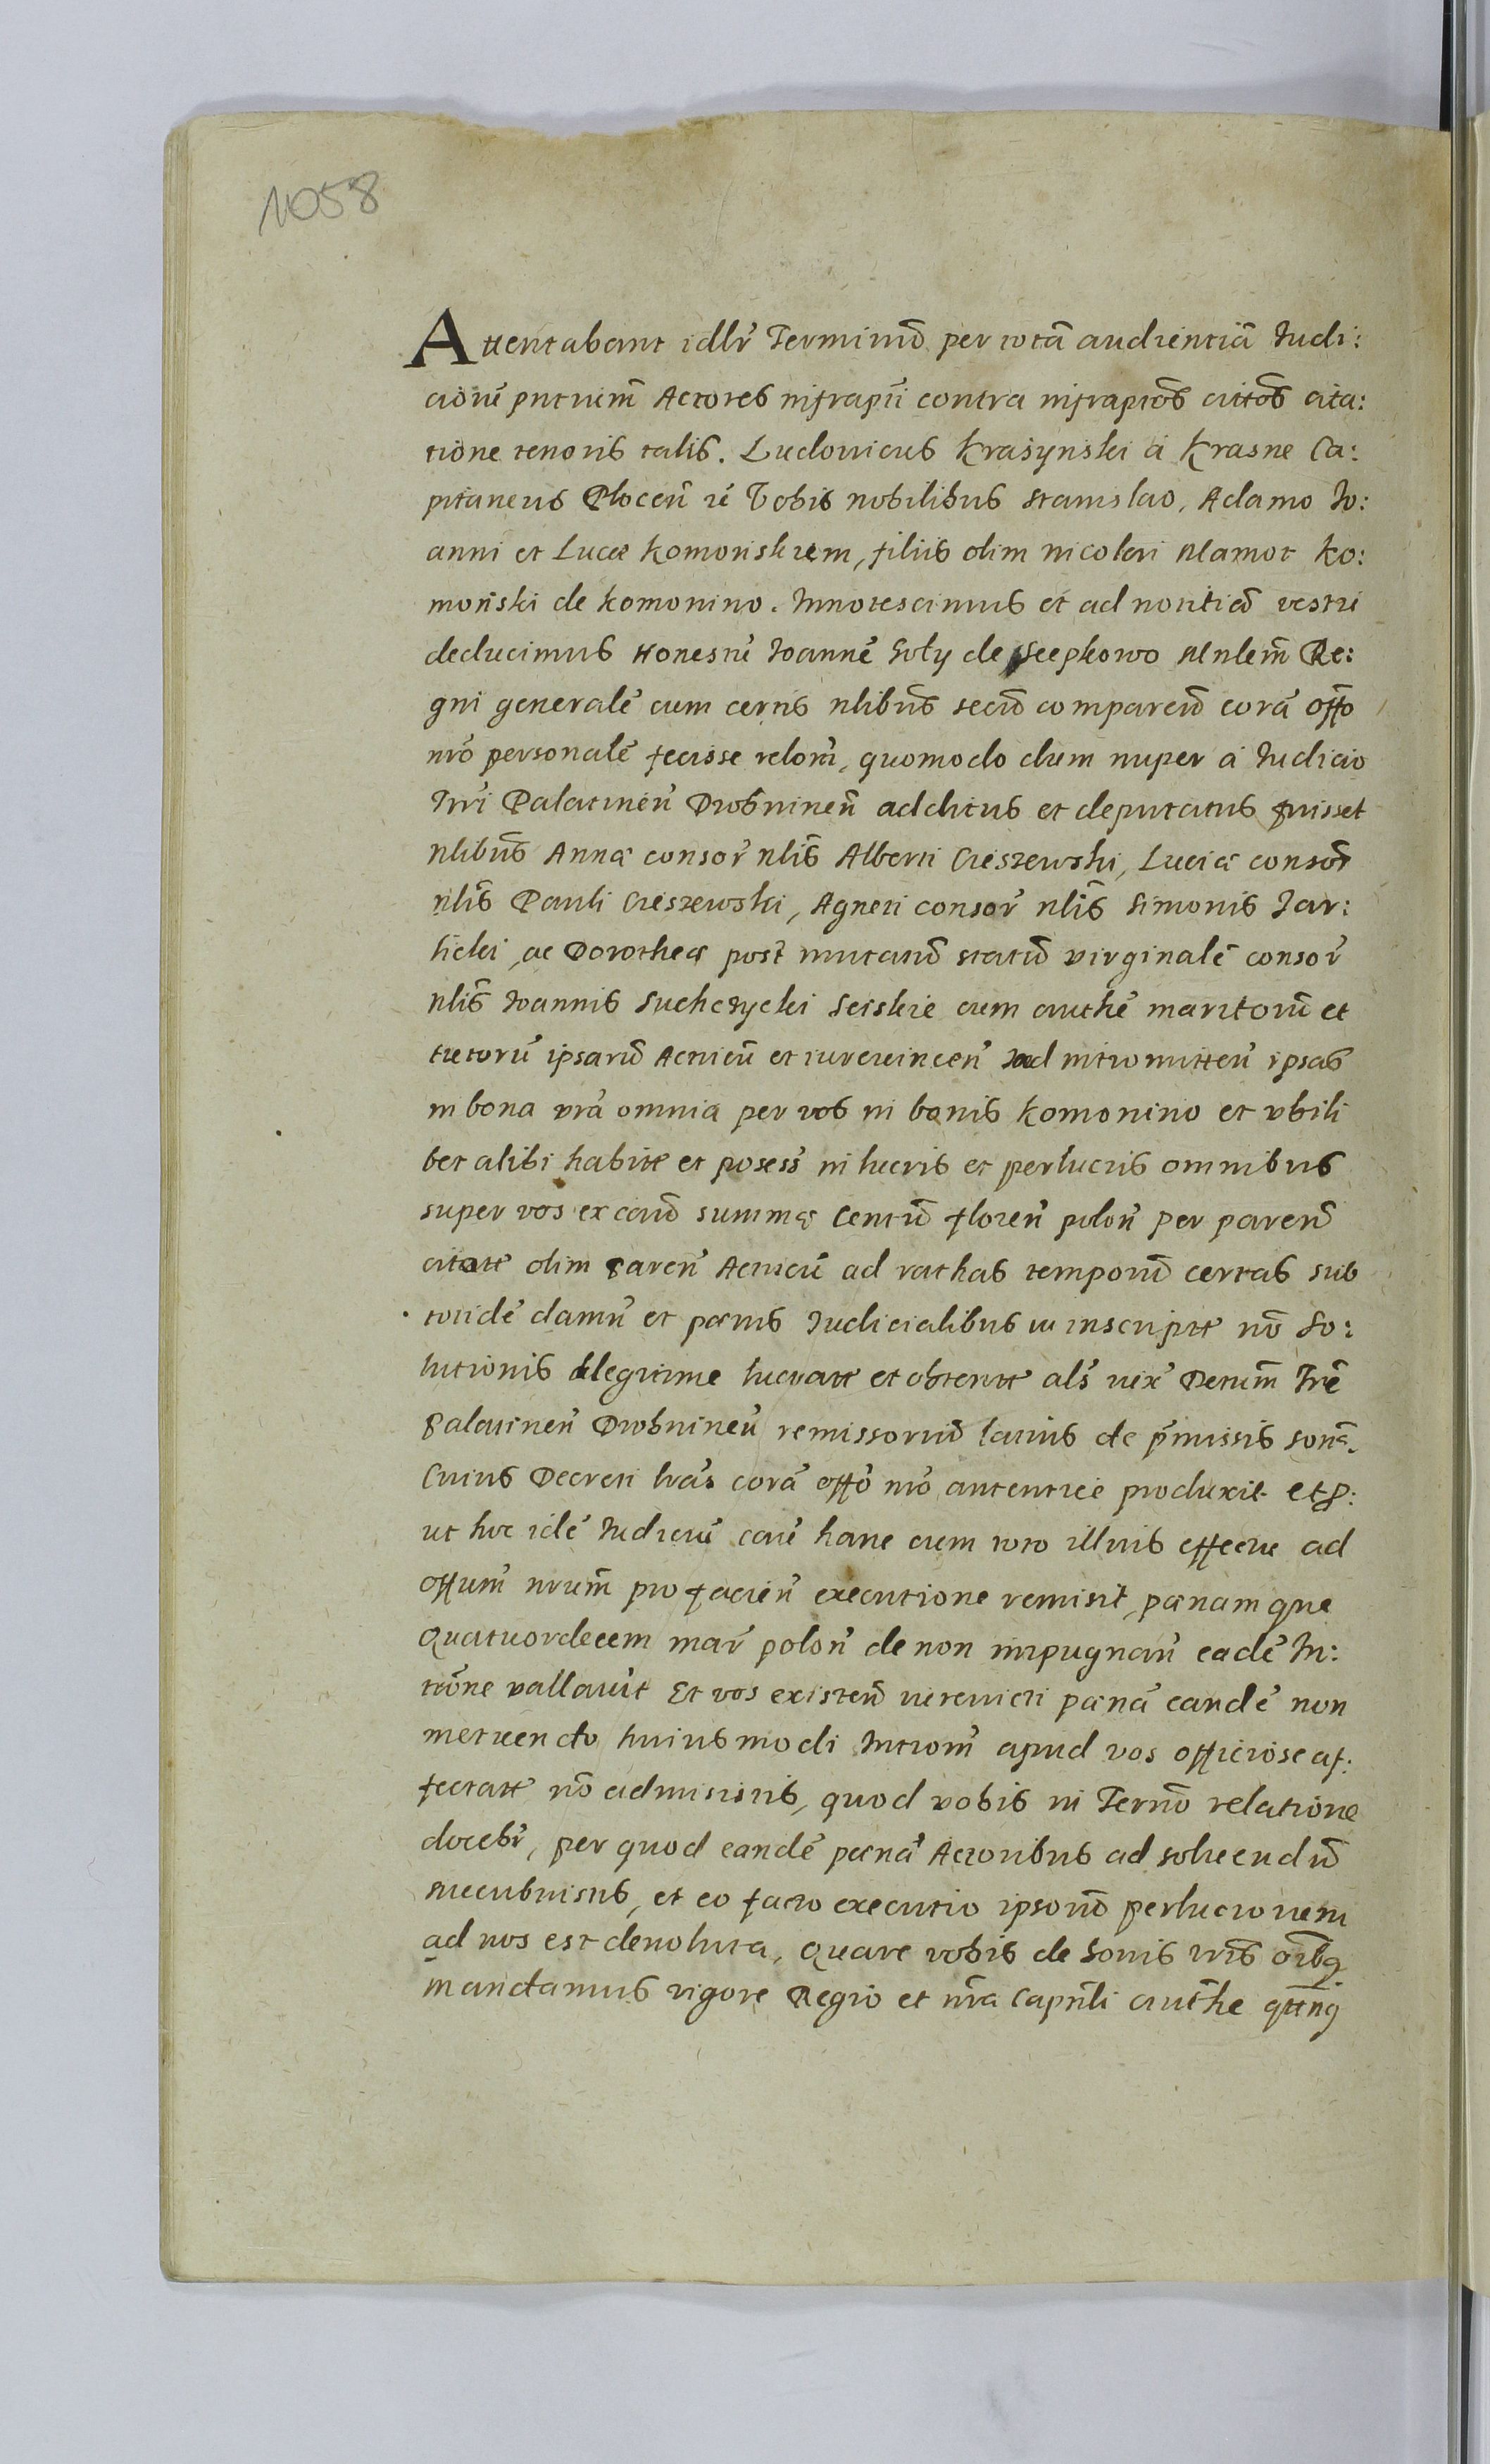 1058
Attentabant idlr̃ Terminũ per totã audientiã Iudi:
ciorũ pntium̃ Actores infrapti contra infraptos citos cita:
tione tenoris talis. Ludovicus Krasynski a Krasne Ca:
pitaneus Plocen̄ ꝛc̄ Vobis nobilibus Stanislao, Adamo Io:
anni et Lucæ Komonskiem, filiis olim Nicolai Mamot Ko:
moñski de Komonino. Innotescimus et ad notitiã vestri
deducimus Honestũ Ioannē Soły de Seepkowo Mnlem̃ Re:
gni generalē cum certis nlibus̃ secũ comparen̄ corã offo
nrõ personalẽ fecisse relom̃, quomodo dum nuper a Iudicio
Trri Palatinen̄ Drobninen̄ additus et deputatus fuisset
nlibus̃ Annæ consor̃ nlis̃ Alberti Cieszewski, Luciæ consor̃
nlis̃ Pauli Cieszewski, Agneti consor̃ nlis̃ Simonis Jar:
licki, ac Dorotheæ post̃ mutatũ statũ virginalẽ consor̃
nlis̃ Ioannis Suchczycki Seiskie cum authẽ maritorũ et
tutorũ ipsarũ Actricũ et iurevincen̄ ad intromitten̄ ipsas
in bona vrã omnia per vos in bonis Komonino et vbili
bet alibi habitt et posess̃ in lucris et perlucris omnibus
super vos ex caũ summæ Centũ floren̄ polon̄ per paren̄
citatt olim paren̄ Actricũ ad rathas temporũ certas sub
totidẽ damn̄ et pænis Iudicialibus in inscriptt nõ So:
lutionis legitime lucratt et obtentt als̃ iux̃ Decrtum̃ Trr̃e
Palatinen̄ Drobninen̄ remissoriũ latius de pr̃missis sonã.
Cuius Decreti lrãs corã offõ nrõ autentice produxit etp:
ut hoc idẽ Iudiciũ caũ hanc cum toto illius effectu ad
offium̃ nrum̃ pro facien̄ executione remisit, pænamque
Quatuordecem mar̃ polon̄ de non impugnan̄ eadẽ In:
trõne vallavit Et vos existen̄ iurevicti pænã eandẽ non
metuendo huiusmodi Intrõm̃ apud vos officiose af:
fectatt nõ admisistis, quod vobis in Termõ relatione
docebr̃, per quod eandẽ pænã Actoribus ad soluendũ
succubuistis, et eo facto executio ipsorũ perlucrorum
ad nos est devoluta, Quare vobis de bonis vris̃ oĩbq
mandamus vigore Regio et nr̃a Capnli authe qttnq